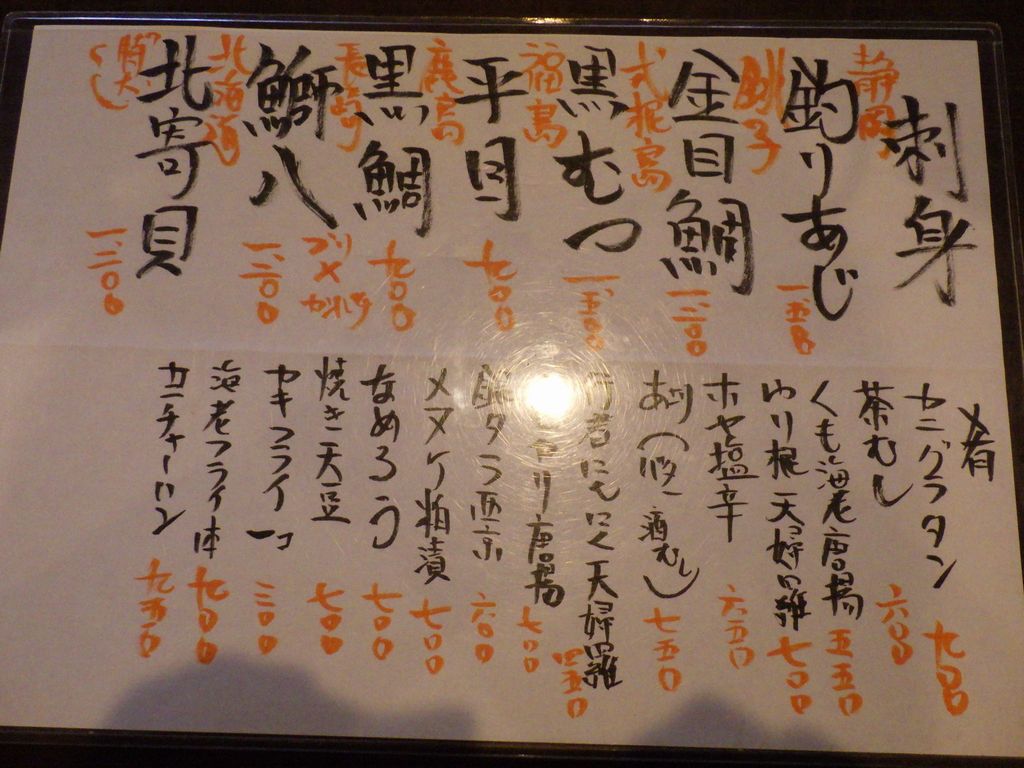 刺身
静岡
釣りあじ
一、五〇〇
銚子
金目鯛
一、二〇〇
式根島
黒むつ
一、五〇〇
福島
平目
九〇〇
鹿島
黒鯛
九〇〇
長崎
鰤八
ブリ×
一、二〇〇
北海道
北寄貝
一、二〇〇
肴
カニグラタン
九〇〇
茶むし
六〇〇
くも海老唐揚
五五〇
ゆり根天婦羅
七〇〇
ホヤ塩辛
六五〇
あさり(酒むし)
七五〇
行者にんにく天婦羅
四五〇
唐揚
七〇〇
銀ダラ西京
六〇〇
メヌケ粕漬
七〇〇
なめろう
七〇〇
焼き天豆
七〇〇
カキフライ一コ
三〇〇
海老フライ一本
九〇〇
カニチャーハン
九五〇